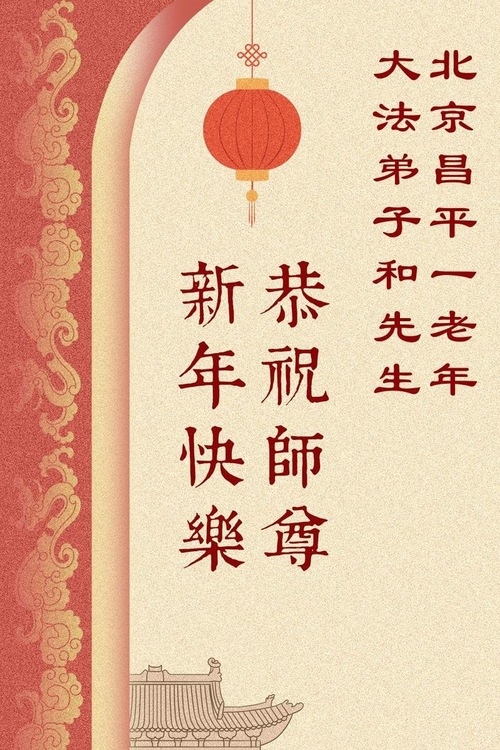 北京昌平一老年
大法弟子和先生
恭祝師尊
新年快樂